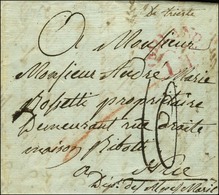 de Trieste
A Monsieur
Monsieur André Marie
Rosetti propriétaire
Demeurant rue droite
maison
a Nice
Dép. des Alpes Marit.